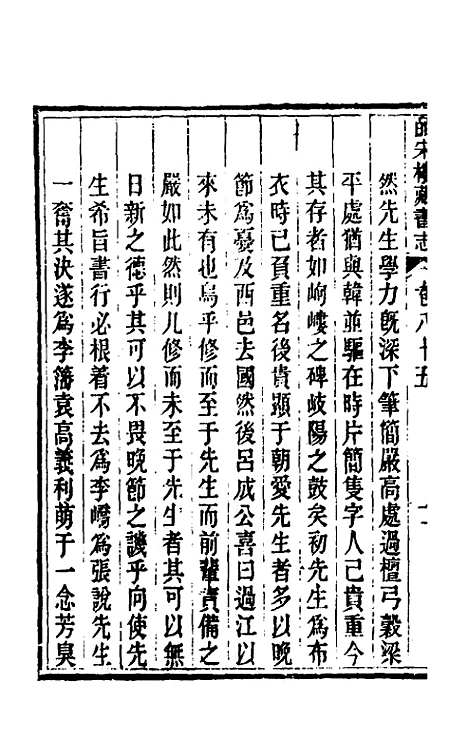 皕宋樓藏書志 卷八十五
然先生學力旣深下筆簡嚴高處過檀弓穀梁
平處猶與韓並驅在時片簡隻字人已貴重今
其存者如岣嶁之碑岐陽之鼓矣初先生爲布
衣時已負重名後貴顯于朝愛先生者多以晚
節爲憂及西邑去國然後呂成公喜曰過江以
來未有也烏乎修而至于先生而前輩責備之
嚴如此然則凡修而未至于先生者其可以無
日新之德乎其可以不畏晚節之譏乎向使先
生希旨書行必根着不去爲李嶠爲張說先生
一奮其決遂爲李藩袁高義利萌于一念芳臭